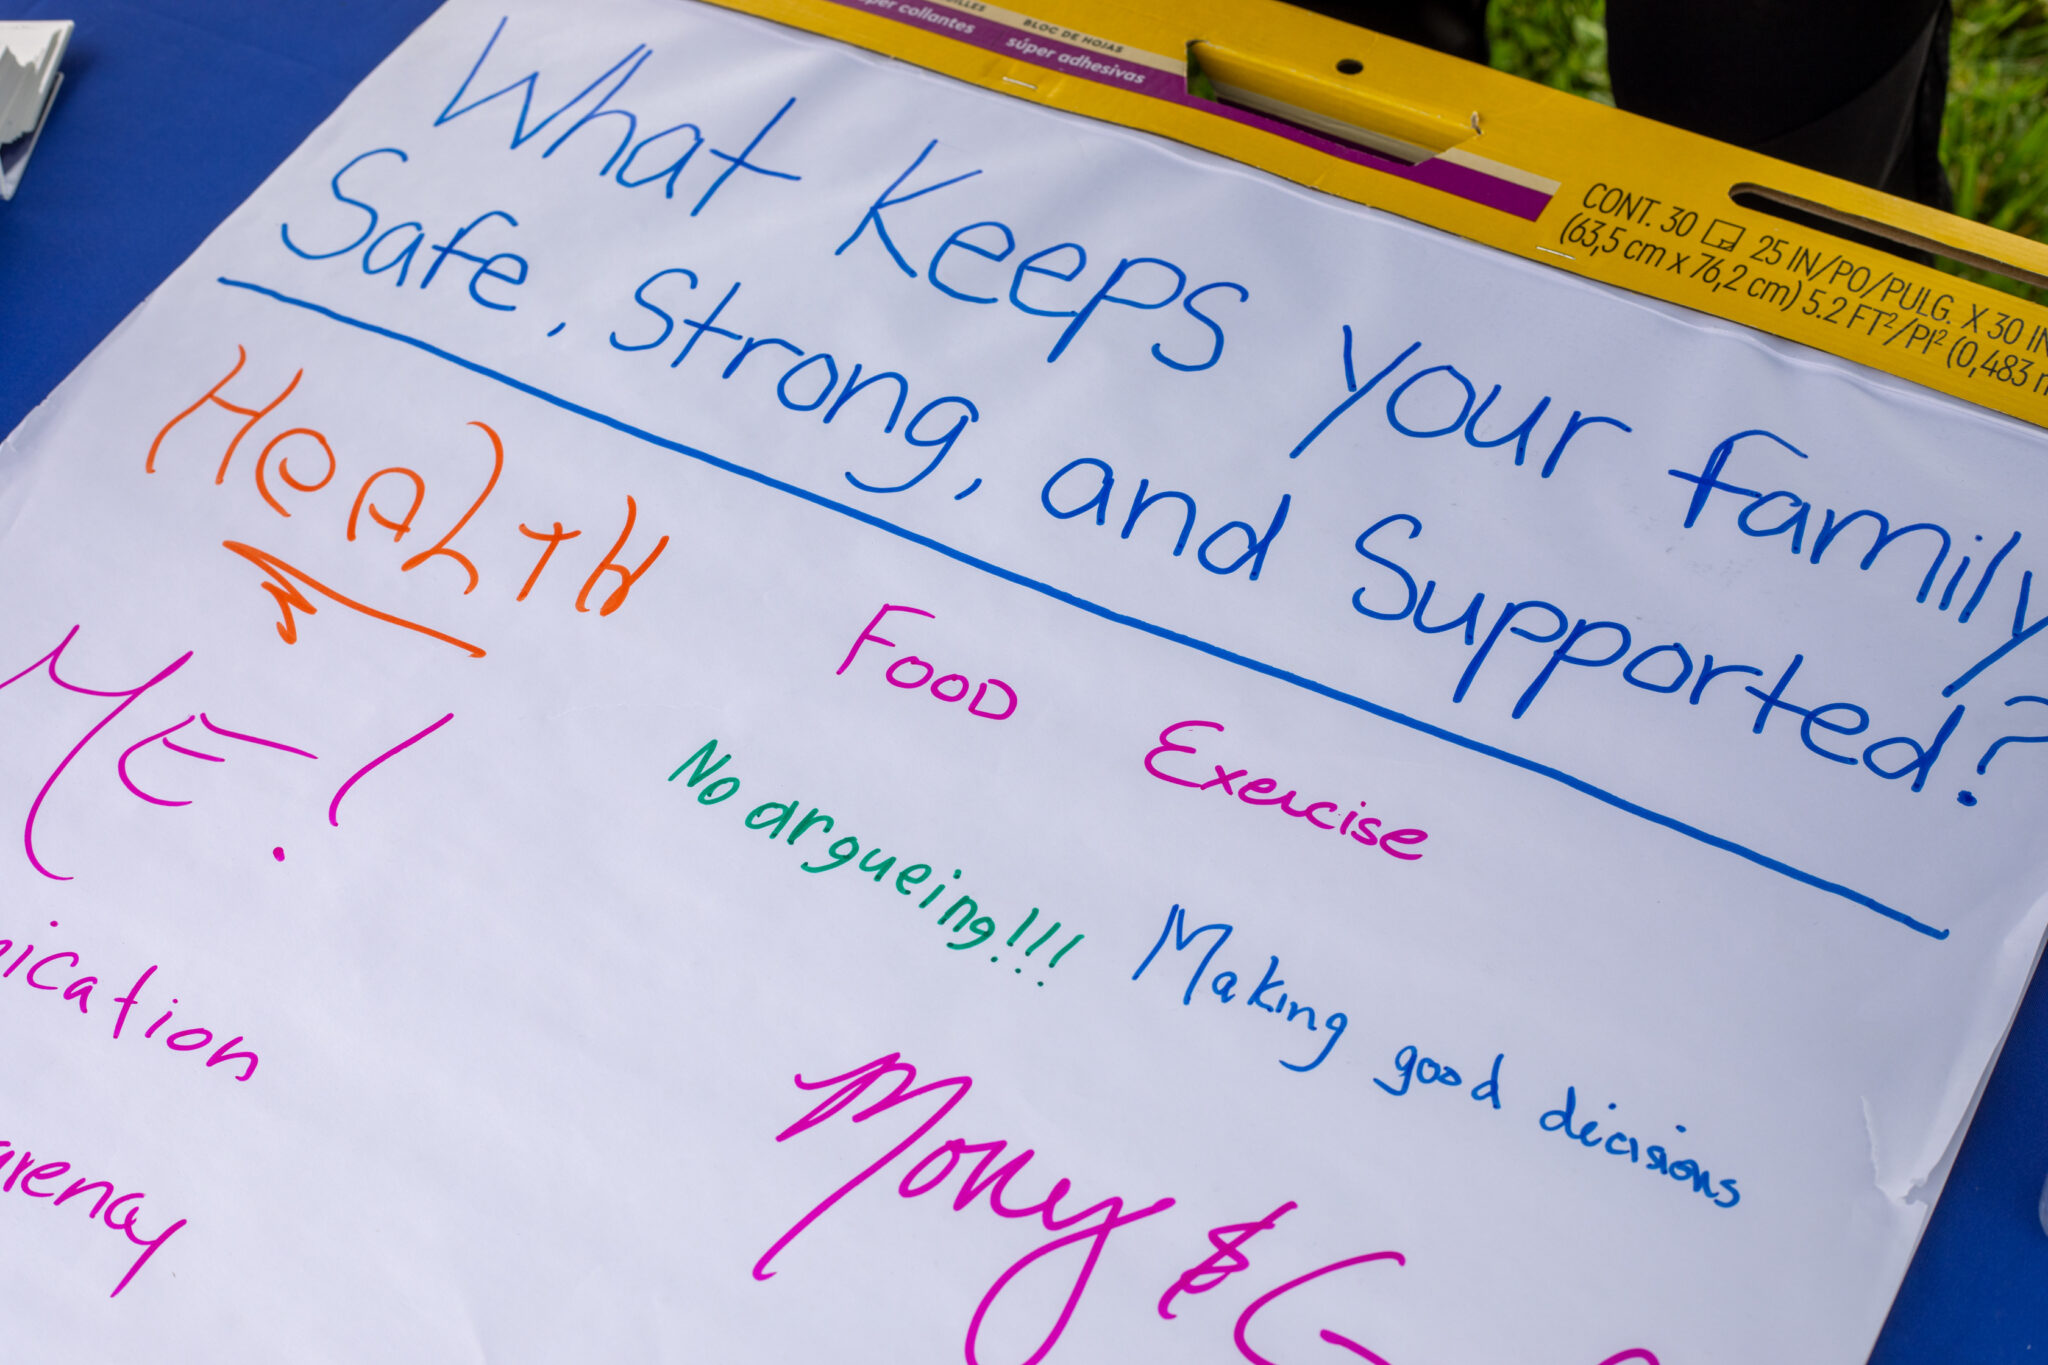 super collantes
BLOC DE HOJAS
súper adhesivas
CONT. 30 25 IN/PO/PULG. X 30 IN
(63,5 cm x 76,2 cm) 5.2 FT²/PI² (0,483
What Keeps your family
Safe, Strong, and Supported?
HeALTH
FOOD
Exercise
ME!
No argueing!!!
Making good decisions
nication
Mony &
arency